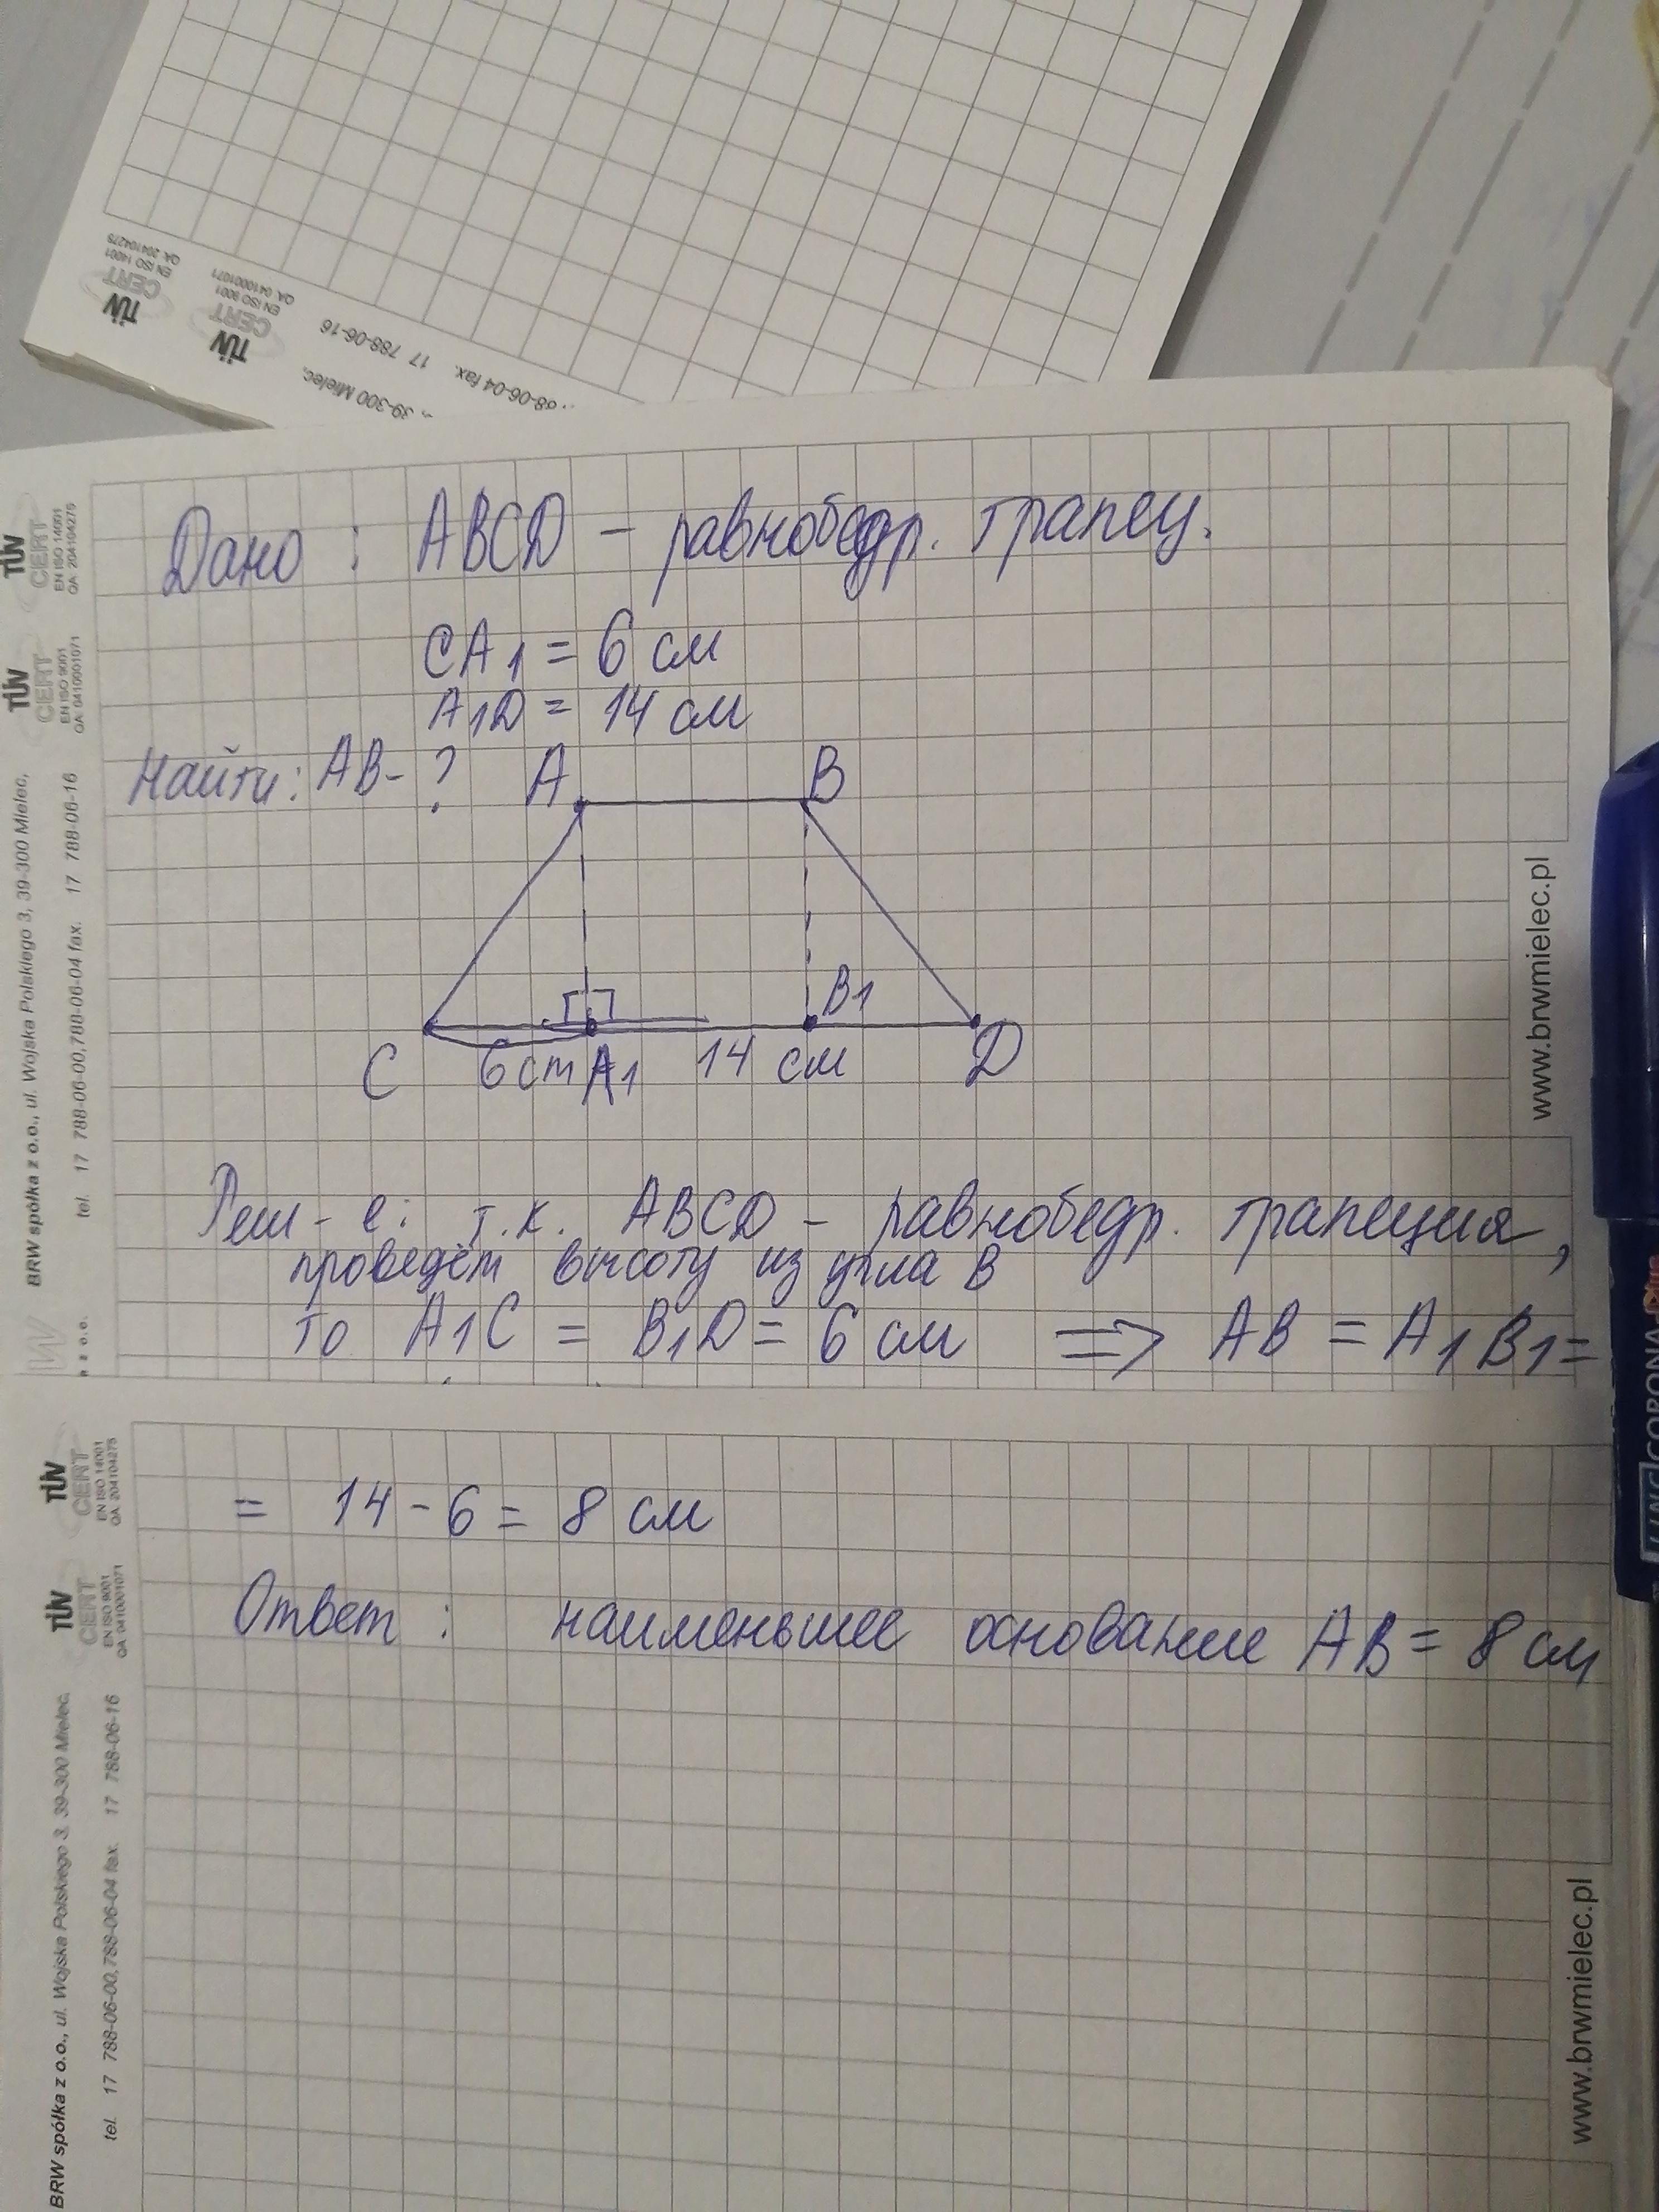 TÜV CERT
EN ISO 14001
QA 204104275
TÜV CERT
EN ISO 9001
QA: 0410001071
17 788-06-16
68-06-04 fax.
39-300 Mielec,
Дано : ABCD – равнобедр. трапец.
CA1 = 6 см
A1D = 14 см
Найти: AB- ?
A B
B1
C 6cm A1 14 см D
Реш-е: т.к. ABCD – равнобедр. трапеция,
проведём высоту из угла B
то A1C = B1D = 6 см => AB = A1B1 =
= 14 - 6 = 8 см
Ответ : наименьшее основание AB = 8 см
TÜV CERT
EN ISO 14001
QA: 204104275
TÜV CERT
EN ISO 9001
QA: 0410001071
BRW spółka z o.o., ul. Wojska Polskiego 3, 39-300 Mielec,
tel. 17 788-06-00,788-06-04 fax. 17 788-06-16
www.brwmielec.pl
z o.o.
TÜV CERT
EN ISO 14001
QA: 204104275
TÜV CERT
EN ISO 9001
QA: 0410001071
BRW spółka z o.o., ul. Wojska Polskiego 3, 39-300 Mielec,
tel. 17 788-06-00,788-06-04 fax. 17 788-06-16
www.brwmielec.pl
LINC CORONA Plus